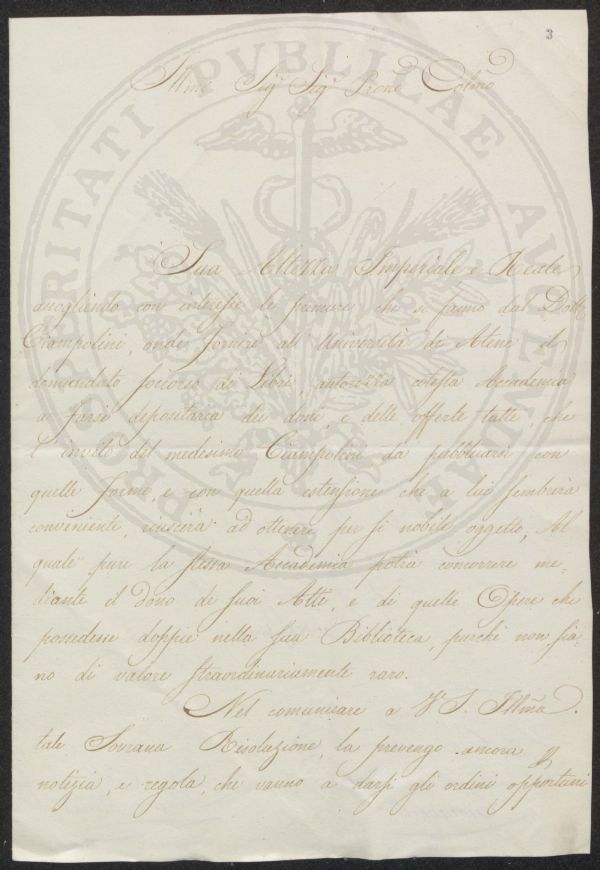 3
Illmo Sigr Sigr Prone Colmo
Sua Altezza Imperiale e Reale
accogliendo con interesse le premure che si fanno dal Dott.
Ciampolini, onde fornire all'Università di Atene il
domandato soccorso di Libri, autorizza cotesta Accademia
a farsi depositaria dei doni, e delle offerte tutte, che
l'invito del medesimo Ciampolini da pubblicarsi con
quelle forme, e con quella estensione che a lui sembrerà
conveniente, riuscirà ad ottenere per sì nobile oggetto; Al
quale pure la stessa Accademia potrà concorrere me-
diante il dono de suoi Atti, e di quelle Opere che
possedesse doppie nella sua Biblioteca, purchè non sia-
no di valore straordinariamente raro.
Nel comunicare a V. S. Illma
tale Sovrana Risoluzione, la prevengo ancora p
notizia, e regola, che vanno a darsi gli ordini opportuni
PROSPERITATI PVBLICAE AVGENDAE